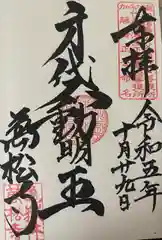 奉拝
令和五年
十月廿九日
身代不動明王
萬松寺